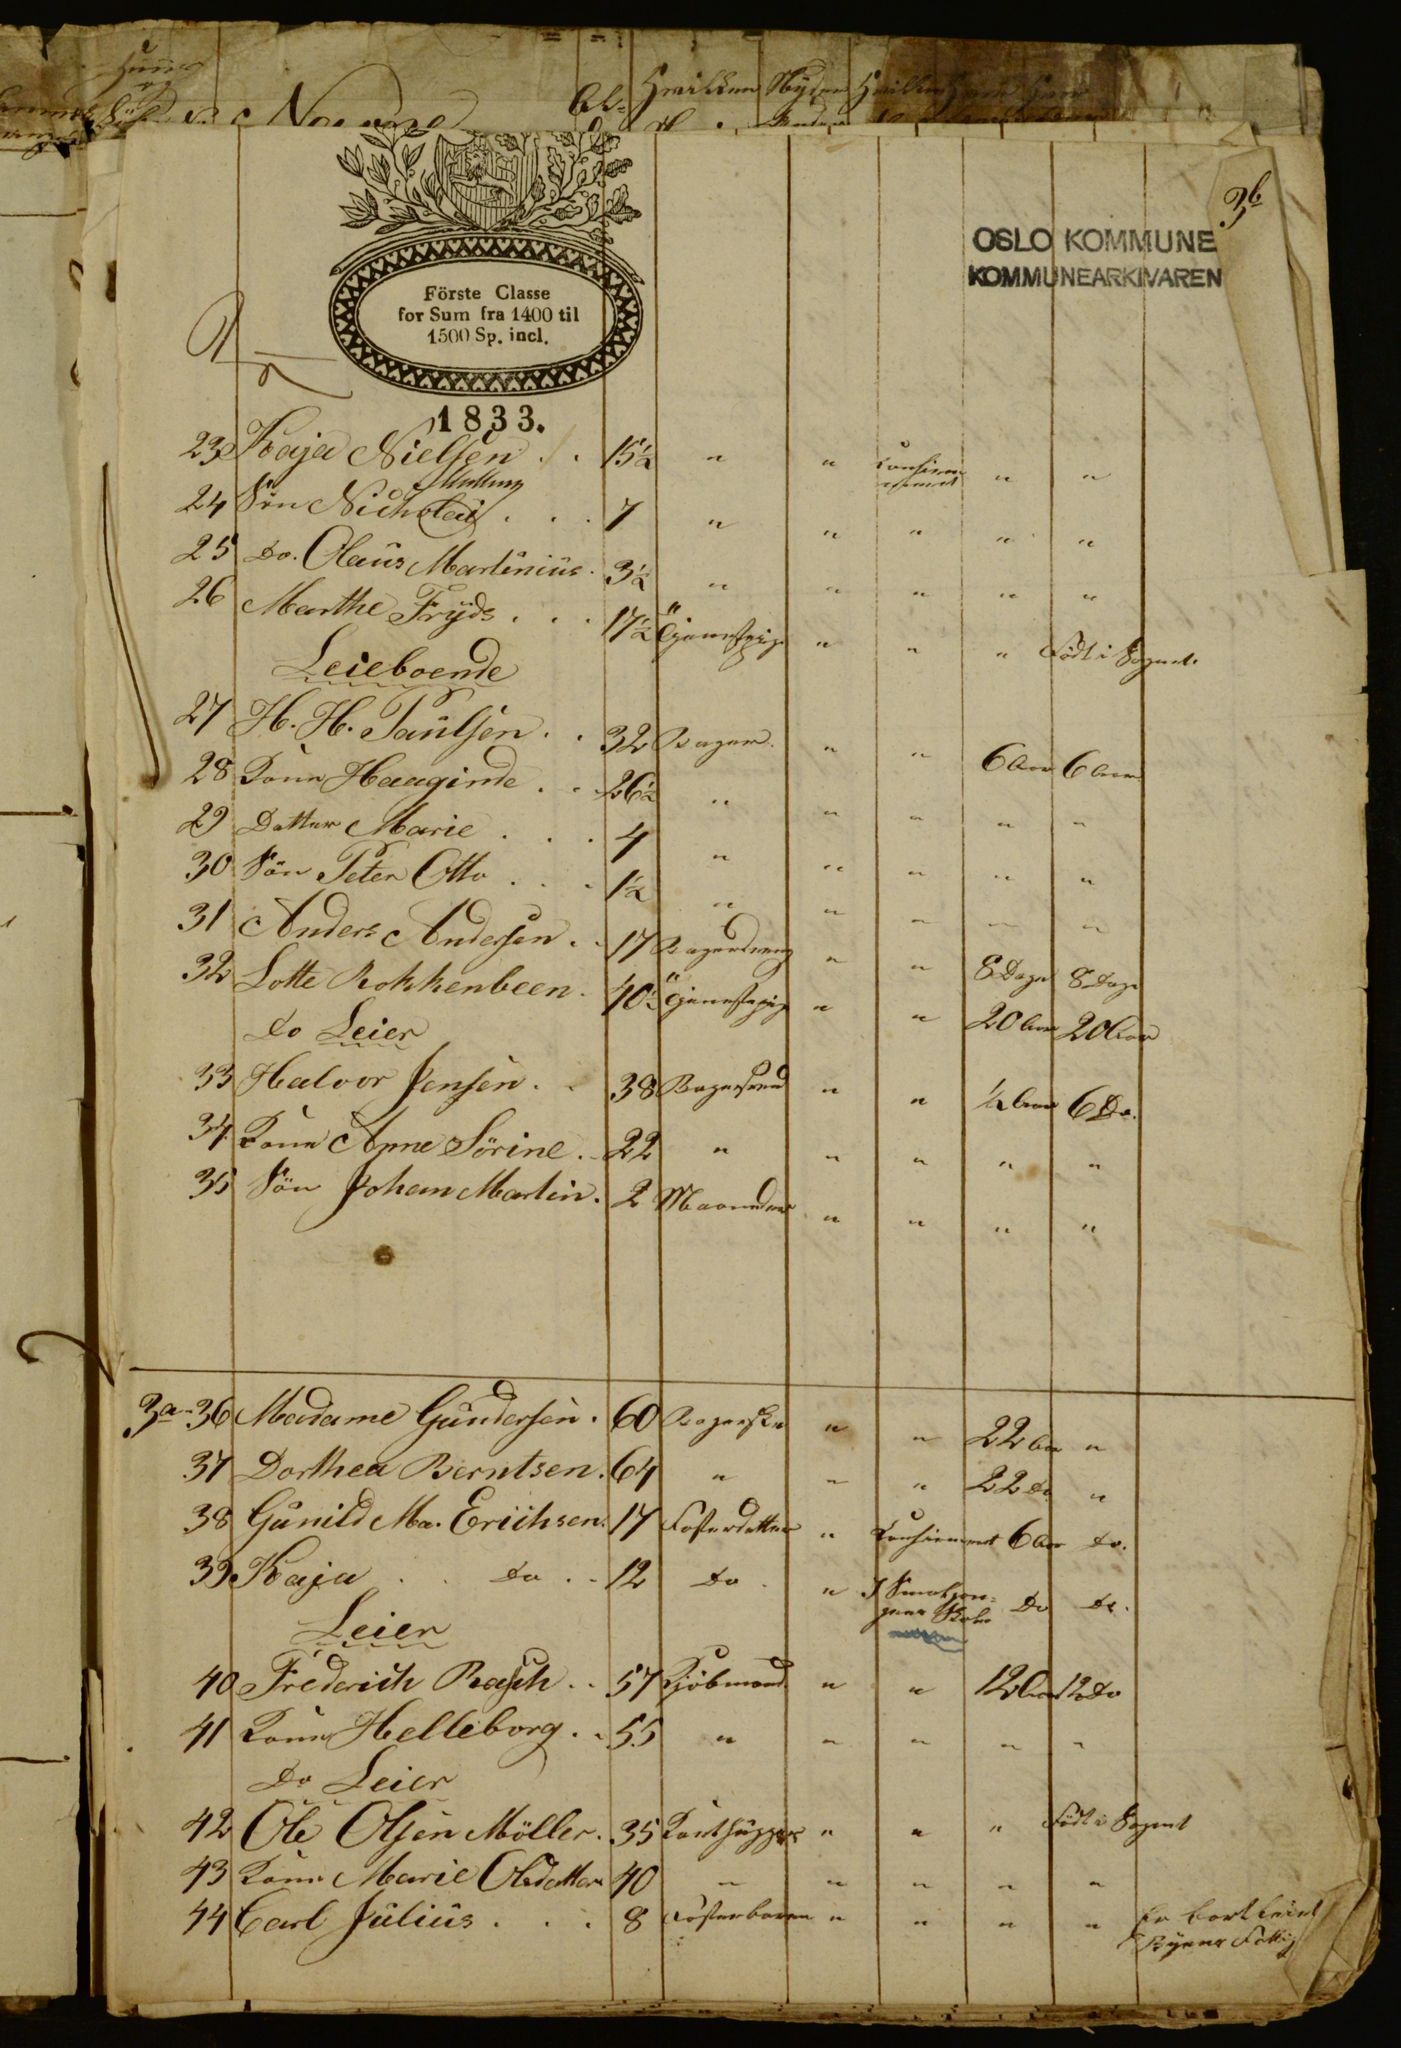 3b
OSLO KOMMUNE
KOMMUNEARKIVAREN
Förste Classe
for Sum fra 1400 til
1500 Sp. incl.
1833.
23 Kaja Nielsen . . 15½ " " Confirmeret " "
24 Sön Nicholai . . . 7 " " " " "
25 Do. Olaus Martinius . 3½ " " " " "
26 Marthe Fryds . . . 17½ Tjenestepige " " " Födt i Sognet.
Leieboende
27 H. H. Paulsen . . 32 Bager . " " 6 Aar 6 Aar
28 Kone Haaginde . . 26½ " " " " "
29 Datter Marie . . . 4 " " " " "
30 Sön Peter Otto . . . 1½ " " " " "
31 Anders Andersen . . 17 Bagerdreng " " 8 Dage 8 Dage
32 Lotte Rokkenbeen . 40½ Tjenestepige " " 20 Aar 20 Aar
Do Leier
33 Halvor Jensen . . 38 Bagersvend " " ½ Aar 6 Do.
34 Kone Anne Sörine . . 22 " " " " "
35 Sön Johan Martin . 2 Maaneder " " " "
3a 36 Madame Gundersen . 60 Bagerske " " 22 Aar "
37 Dorthea Berntsen . 64 " " " 22 Do "
38 Gunild Ma. Erichsen . 17 Fosterdatter " Confirmeret 6 Aar Do.
39 Kaja . . Do . . 12 Do . " I Skole Do Do.
Leier
40 Frederich Rasch . . 57 Kjöbmand " " 12 Aar 12 Do
41 Kone Helleborg . . 55 " " " " "
Do Leier
42 Ole Olsen Möller . 35 " " " Födt i Sognet
43 Kone Marie Olsdatter 40 " " " " "
44 Carl Julius . . . 8 Fosterbarn " " " " Er bortleiet
Byens Fattig